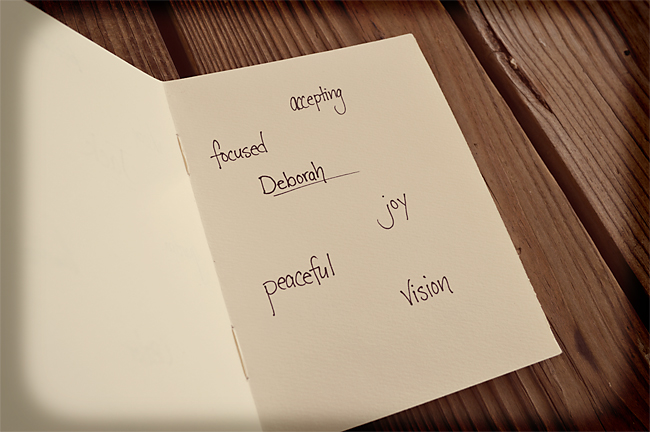 accepting
focused
Deborah
joy
peaceful
Vision